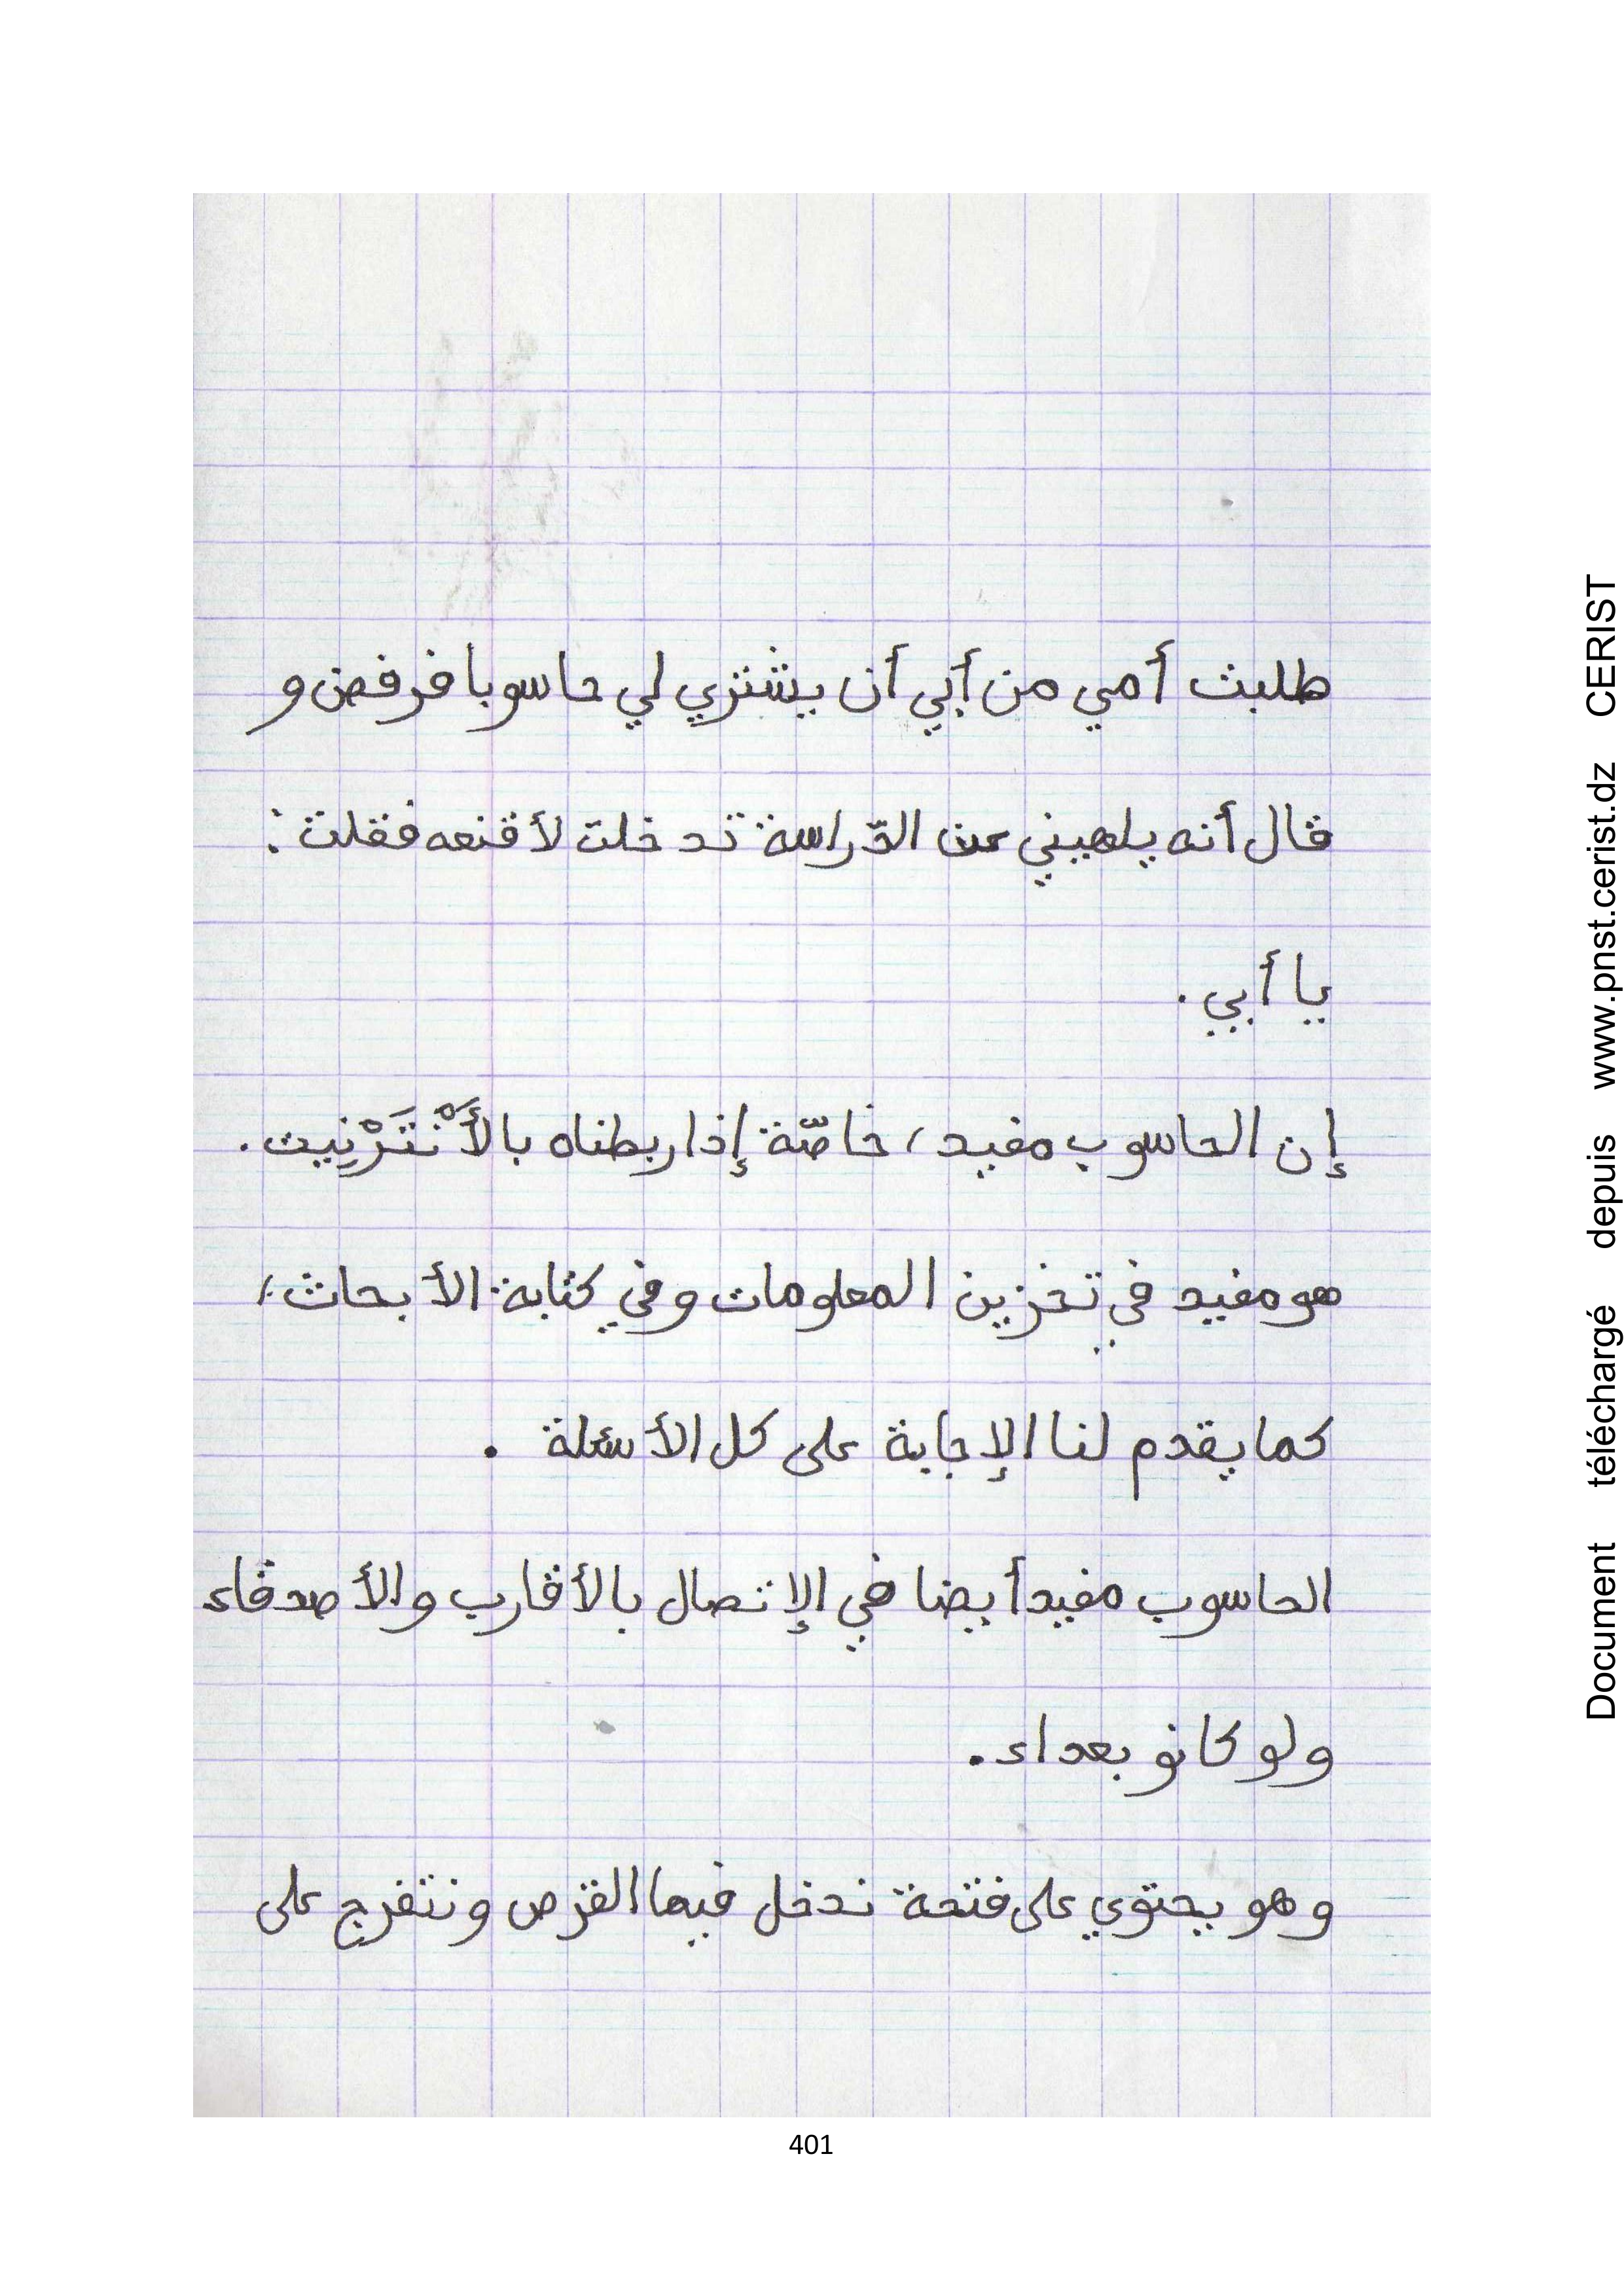 طلبت أمي من أبي أن يشتري لي حاسوبا فرفض و
قال أنه يلهيني عن الدّراسة تدخلت لأقنعه فقلت :
يا أبي .
إن الحاسوب مفيد ، خاصّة إذا ربطناه بالأَنْتَرْنِيت .
هو مفيد في تخزين المعلومات و في كتابة الأبحاث ،
كما يقدم لنا الإجابة على كل الأسئلة .
الحاسوب مفيد أيضا في الإتصال بالأقارب و الأصدقاء
و لو كانو بعداء .
و هو يحتوي على فتحة ندخل فيها القرص و نتفرج على
401
Document téléchargé depuis www.pnst.cerist.dz CERIST